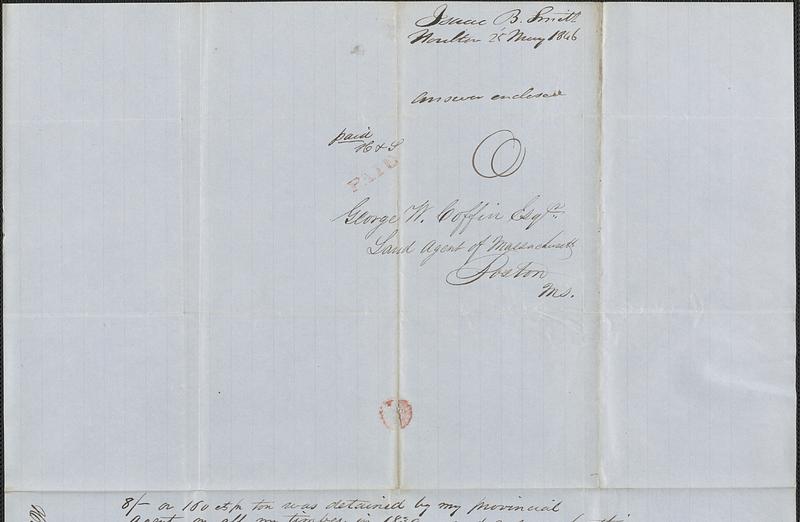 Isaac B. Smith
Houlton 25 May 1846
answer enclosed
paid
H & S
PAID
George W. Coffin Esqr.
Land Agent of Massachusetts
Boston
Ms.
8/- or 160 cts pr ton was detained by my provincial
agent on all my timber in 1839